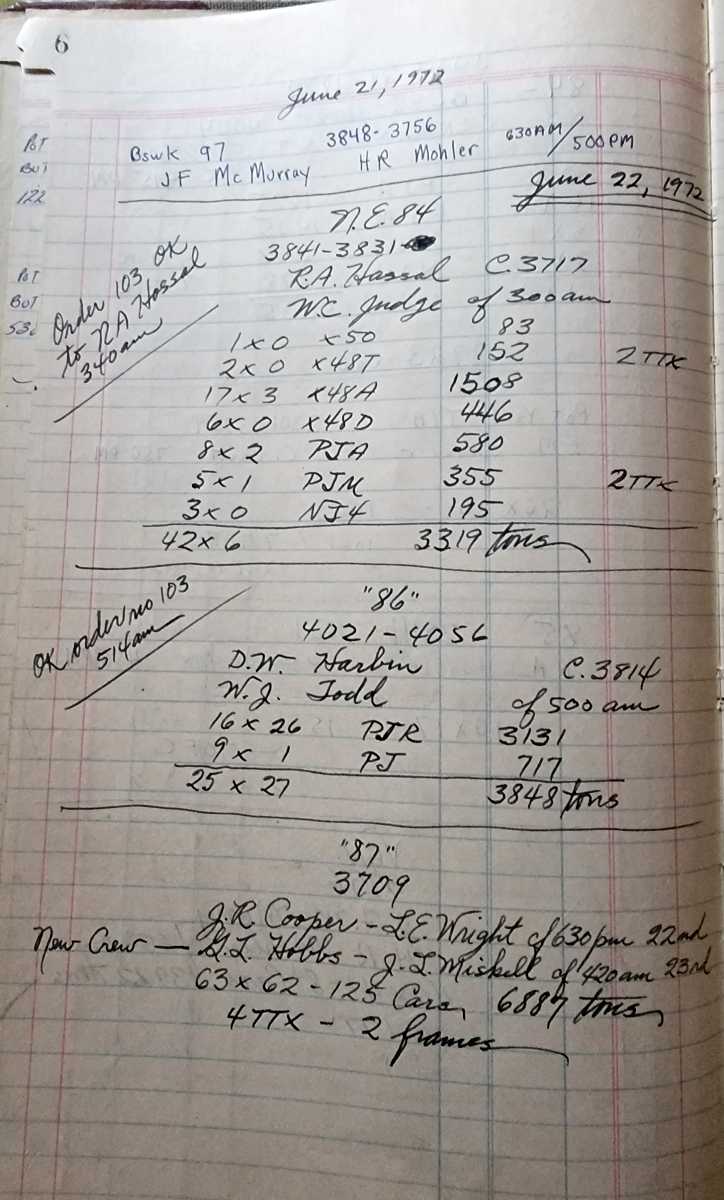 6
June 21, 1972
Bswk 97 3848-3756 630AM/500PM
JF McMurray HR Mohler
June 22, 1972
N.E. 84
3841-3831
Order 103 OK
to RA Hassal
340am
R.A. Hassal C. 3717
W.C. Judge of 300am
1x0 x50 83
2x0 x48T 152 2 TTX
17x3 x48A 1508
6x0 x48D 446
8x2 PJA 580
5x1 PJM 355 2TTX
3x0 NJ4 195
42x6 3319 tons
"86"
4021-4056
OK order no 103
514am
D.W. Harbin C. 3814
W.J. Todd of 500 am
16x26 PJR 3131
9x 1 PJ 717
25x27 3848 tons
"87"
3709
J.R. Cooper - L.E. Wright of 630pm 22nd
New Crew - G.L. Hobbs - J.L. Miskell of 420am 23rd
63x62-125 Cars, 6887 tons
4TTX - 2 frames